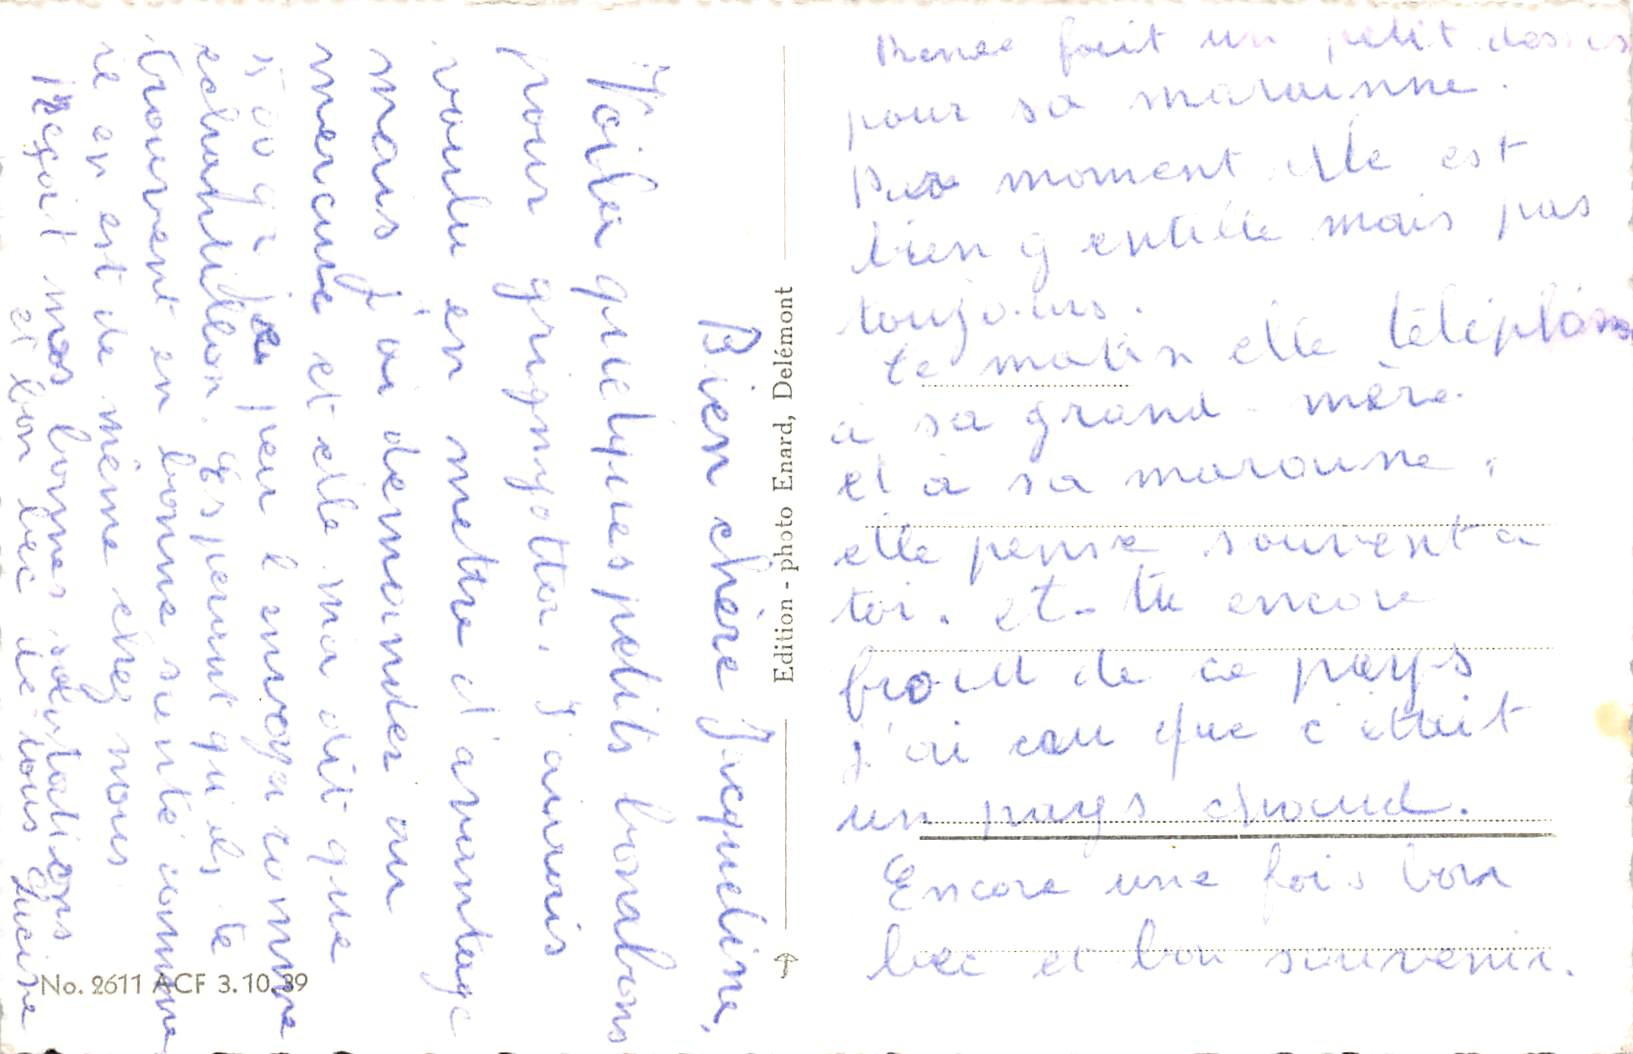 Bien chère Jacqueline,
Voila quelques petits bonabons
pour grignjotter. J'aurais
voulu en mettre d'avantage
mais j'ai demander au
mercure et elle ma dit que
si ou qu' je peu l envoyer comme
echantillon. Esperant qu'ils te
trouvent en bonne sienté comme
il en est de même chez nous
Reçoit nos bonnes salutations
et bon bec de tous Lucine
Edition - photo Enard, Delémont
No. 2611 ACF 3.10.39
fait un petit dessin
pour sa marainne.
moment elle est
bien gentille mais pas
toujours.
Le matin elle téléphone
a sa grand-mère
et a sa maraine,
elle pense souvent a
toi. et-tu encore
froid de ce pays
j'ai cru que c'était
un pays chaud.
Encore une fois bon
bec et bon souvenir.